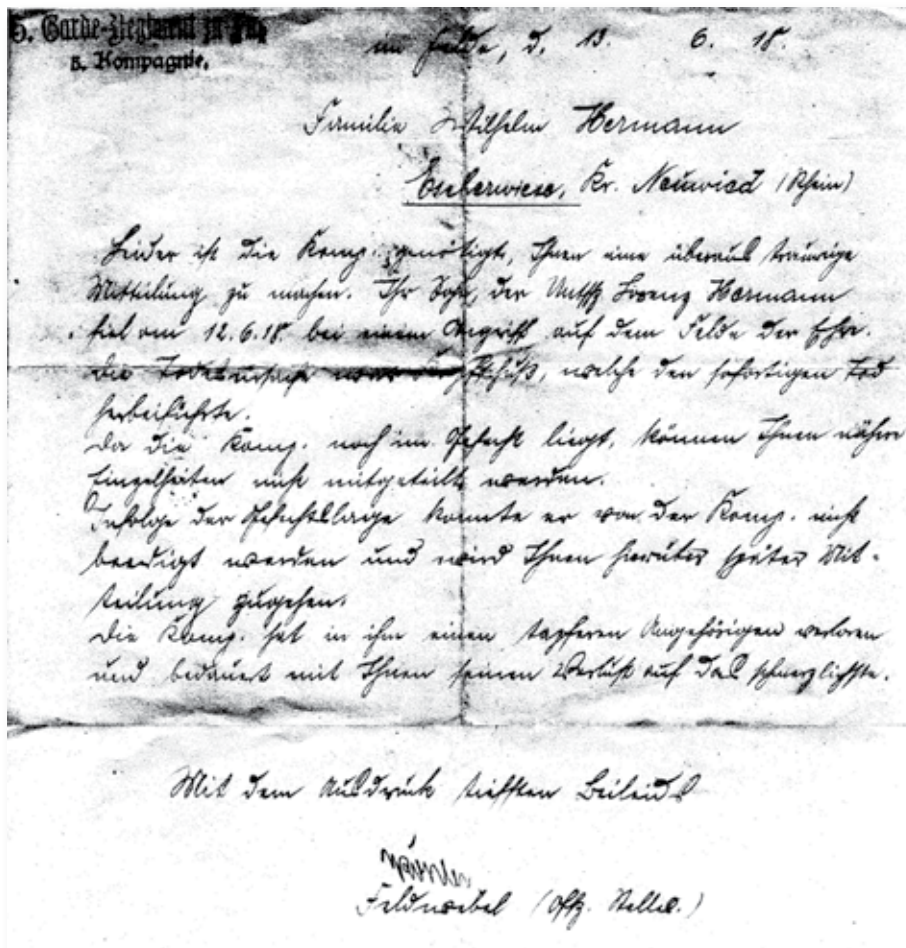 5. Garde-Regiment zu Fuß
5. Kompagnie.
im Felde, d. 13. 6. 18.
Familie Wilhelm Hermann
Escherwiese, Kr. Neuwied (Rhein)
Leider ist die Komp. genötigt, Ihnen eine überaus traurige
Mitteilung zu machen. Ihr Sohn, der Untffz Lorenz Hermann
fiel am 12.6.18. bei einem Angriff auf dem Felde der Ehre.
Die Todesursache war Kopfschuß, welche den sofortigen Tod
herbeiführte.
Da die Komp. noch im Gefecht liegt, können Ihnen nähere
Einzelheiten nicht mitgeteilt werden.
Infolge der Gefechtslage konnte er von der Komp. nicht
beerdigt werden und wird Ihnen hierüber später Mit-
teilung zugehen.
Die Komp. hat in ihm einen tapferen Angehörigen verloren
und bedauert mit Ihnen seinen Verlust auf das schmerzlichste.
Mit dem Ausdruck tiefsten Beileids
Feldwebel (Offz. Stellv.)